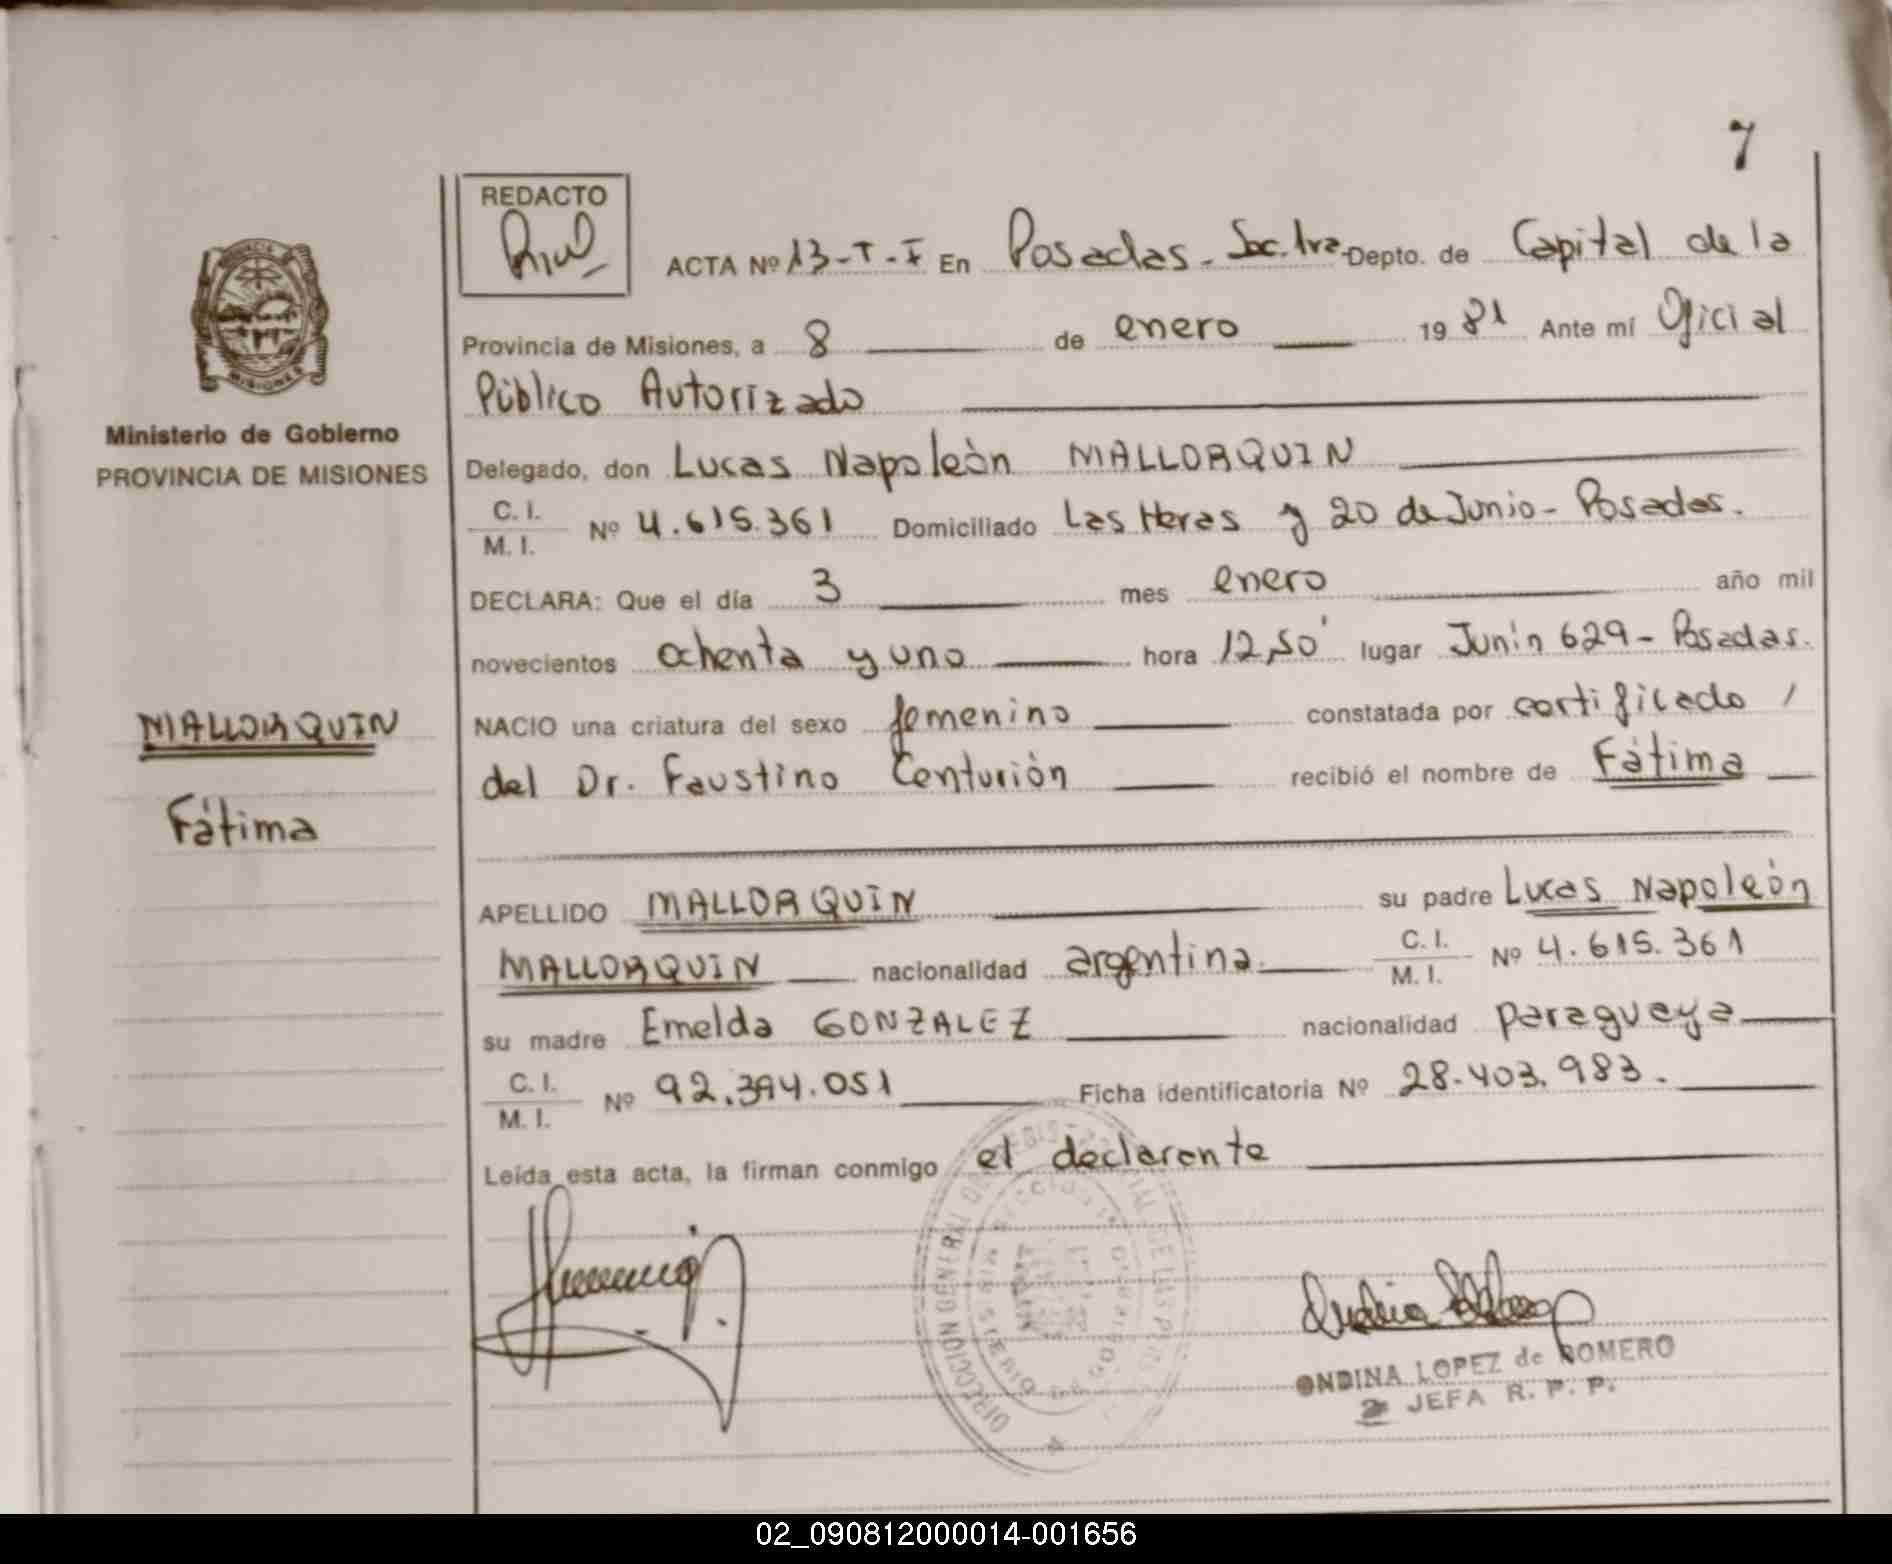 7
REDACTO
ACTA Nº 13-T-I En Posadas - Sec. 1ra. Depto. de Capital de la
Provincia de Misiones, a 8 de enero 1981 Ante mí Oficial
Público Autorizado
Ministerio de Gobierno
PROVINCIA DE MISIONES
Delegado, don Lucas Napoleòn MALLORQUIN
C. I.
M. I. Nº 4.615.361 Domiciliado Las Heras y 20 de Junio - Posadas.
DECLARA: Que el día 3 mes enero año mil
novecientos ochenta y uno hora 12,50' lugar Junín 629 - Posadas.
MALLORQUIN
Fátima
NACIO una criatura del sexo femenino constatada por certificado /
del Dr. Faustino Centurión recibió el nombre de Fátima
APELLIDO MALLORQUIN su padre Lucas Napoleòn
MALLORQUIN nacionalidad argentina C. I.
M. I. Nº 4.615.361
su madre Emelda GONZALEZ nacionalidad paraguaya
C. I.
M. I. Nº 92.394.051 Ficha identificatoria Nº 28.403.983.
Leída esta acta, la firman conmigo el declarante
DIRECCIÓN GENERAL DE REGIS DE LAS PERS
ONDINA LOPEZ de ROMERO
2ª JEFA R. P. P.
02_090812000014-001656